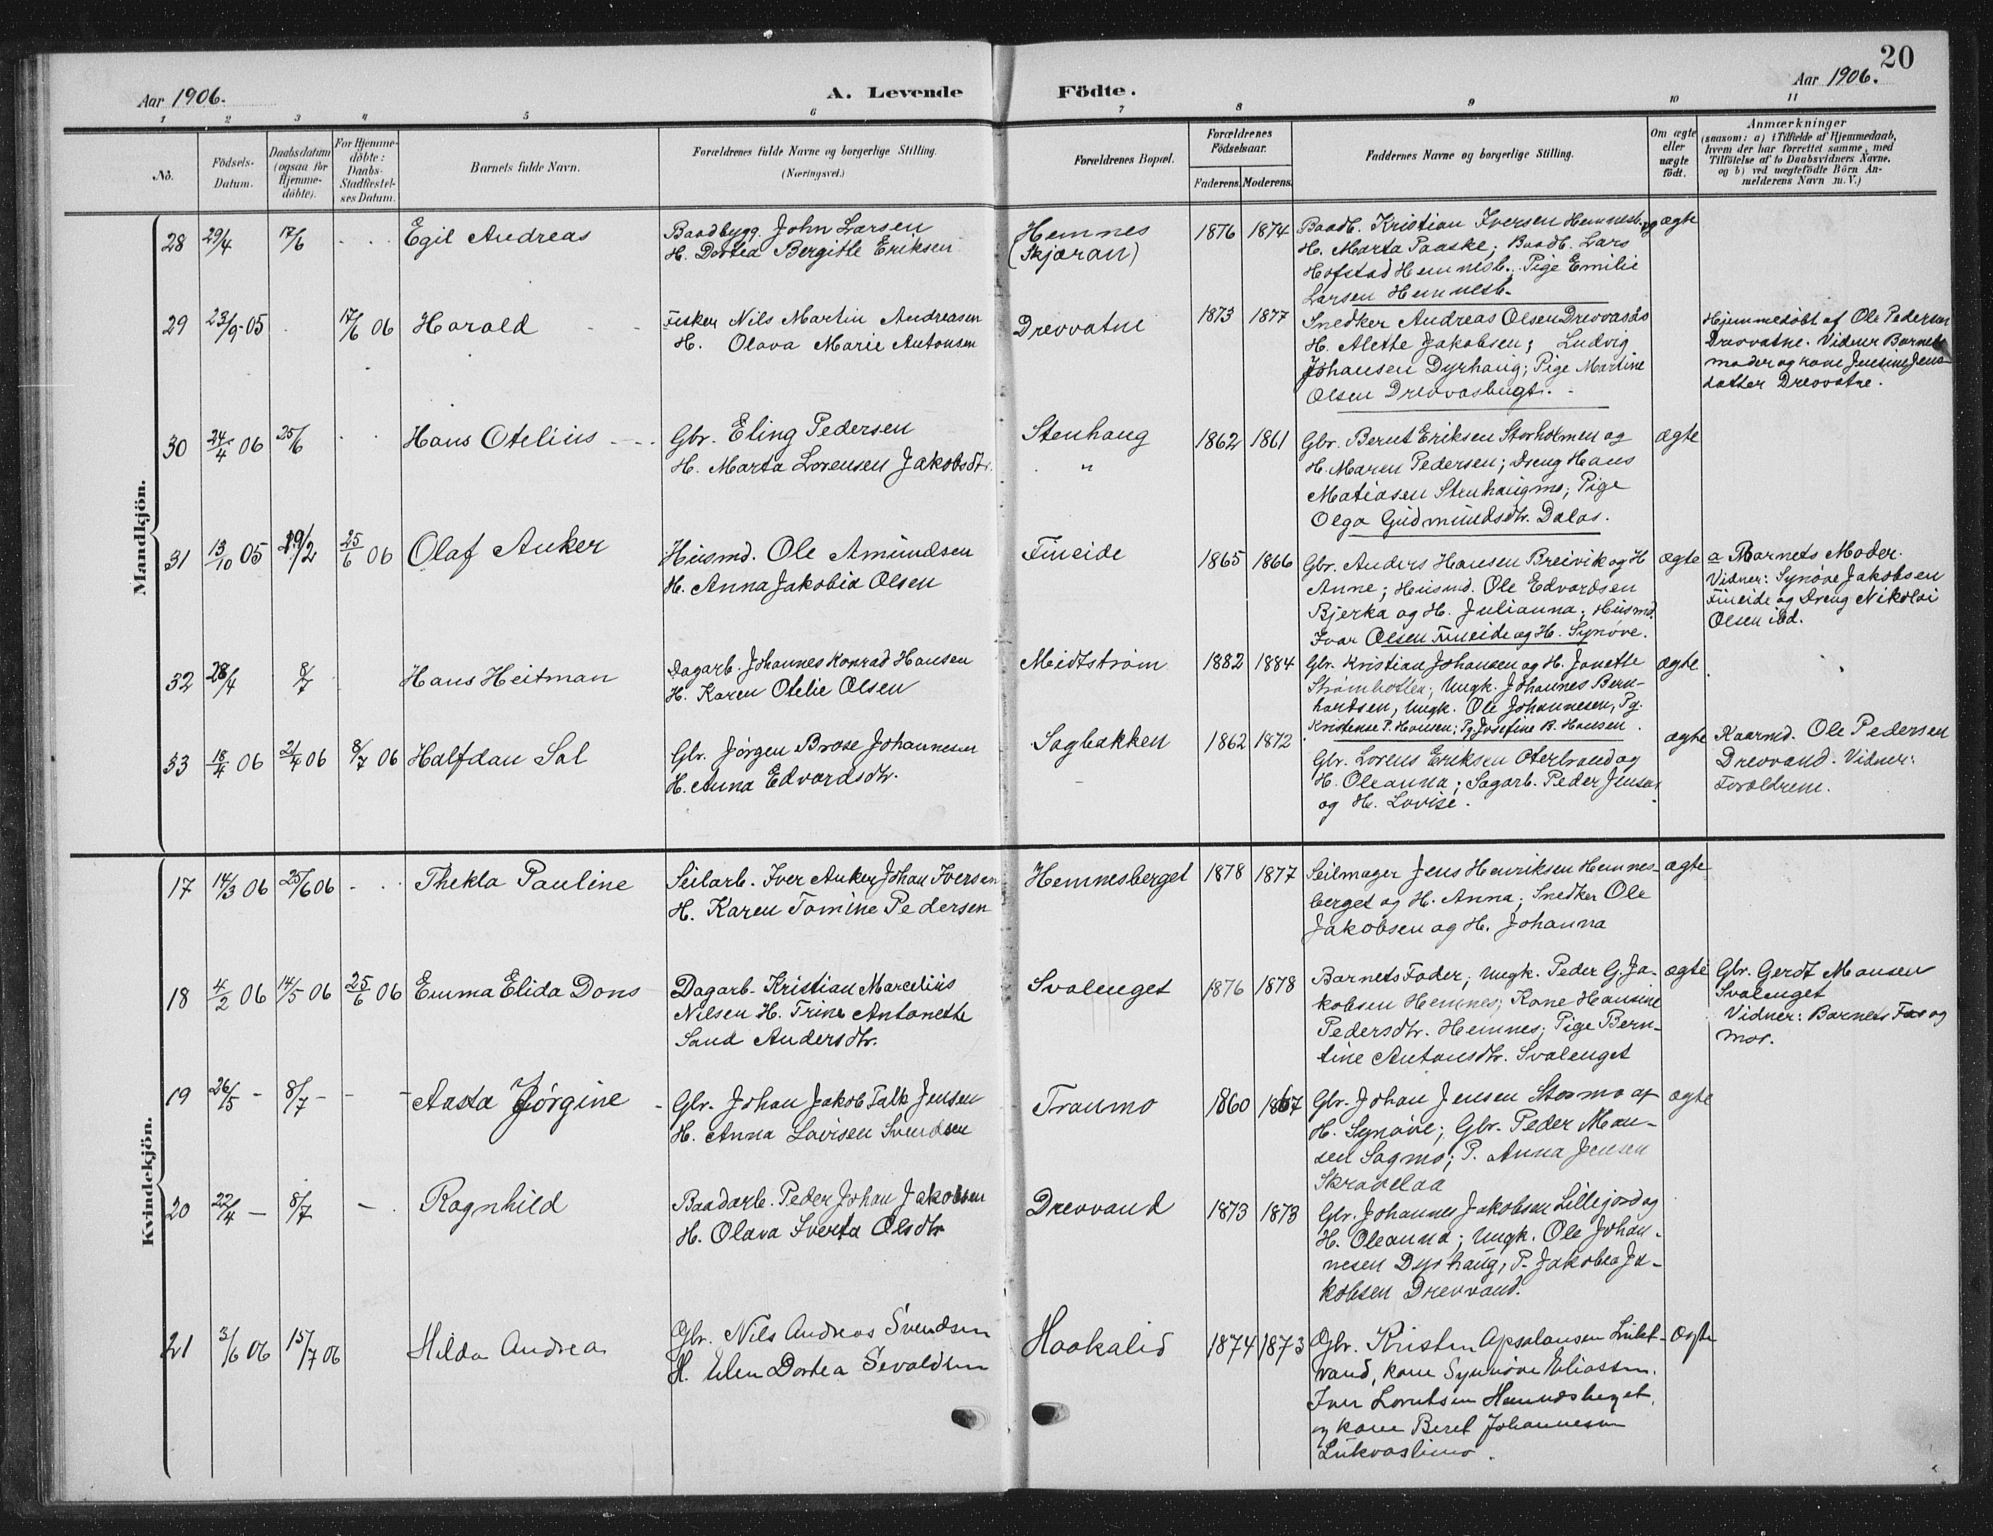 20
Aar 1906.
A. Levende Födte.
Aar 1906.
1 2 3 4 5 6 7 8 9 10 11
No.
Födsels-
Datum.
Daabsdatum
(ogsaa for
Hjemme-
döbte).
For Hjemme-
döbte:
Daabs-
Stadfæstel-
ses Datum.
Barnets fulde Navn.
Forældrenes fulde Navne og borgerlige Stilling.
(Næringsvei.)
Forældrenes Bopæl.
Forældrenes
Födselsaar.
Faderens. Moderens.
Faddernes Navne og borgerlige Stilling.
Om ægte
eller
uægte
födt.
Anmærkninger
(saasom: a) i Tilfælde af Hjemmedaab,
hvem der har forrettet samme, med
Tilföielse af to Daabsvidners Navne.
og b) ved uægtefödte Börn An-
melderens Navn m. V.)
Mandkjön.
28 29/4 17/6 Egil Andreas
Baadbygg. John Larsen
H. Dortea Bergitte Eriksen
Hemnes
(Skjæran)
1876 1874
Baadb. Kristian Iversen Hemnesb. og
H. Marta Paaske; Baadb. Lars
Hofstad Hemnesb.; Pige Emilie
Larsen Hemnesb.
ægte
29 23/9-05 17/6 06 Harald
Fisker Nils Martin Andreasen
H. Olava Marie Antonsen
Drevvatne
1873 1877
Snedker Andreas Olsen Drevvasås
H. Alette Jakobsen; Ludvig
Johansen Dyrhaug; Pige Martine
Olsen Drevvasbugt.
Hjemmedøbt af Ole Pedersen
Drevvatne. Vidner Barnets
moder og kone Jensine Jens
datter Drevvatne.
30 24/4 06 25/6 Hans Otelius
Gbr. Eling Pedersen
H. Marta Lorensen Jakobsdtr.
Stenhaug
"
1862 1861
Gbr. Bernt Eriksen Storholmen og
H. Maren Pedersen; Dreng Hans
Matiasen Stenhaugmo; Pige
Olga Gudmundsdtr. Dalas.
ægte
31 13/10 05 29/2 25/6 06 Olaf Anker
Husmd. Ole Amundsen
H. Anna Jakobia Olsen
Fineide
1865 1866
Gbr. Anders Hansen Breivik og H
Anne; Husmd. Ole Edvardsen
Bjerka og H. Julianna; Husmd.
Ivar Olsen Fineide og H. Synøve.
ægte
a Barnets Moder.
Vidner: Synøve Jakobsen
Fineide og Dreng Nikolai
Olsen ibd.
32 28/4 8/7 Hans Heitman
Dagarb. Johannes Konrad Hansen
H. Karen Otelie Olsen
Meidtstrøm
1882 1884
Gbr. Kristian Johansen og H. Janette
Strømbotten; Ungk. Johannes Bern-
hardsen, Ungk. Ole Johannesen, Pg.
Kristense P. Hansen; Pg. Josefine B. Hansen.
ægte
33 18/4 06 21/4 06 8/7 06 Halfdan Sal
Gbr. Jørgen Brose Johannesen
H. Anna Edvardsdtr.
Sagbakken
1862 1872
Gbr. Lorens Eriksen Oterbrand og
H. Oleanna; Sagarb. Peder Jensen
og H. Lovise.
ægte
Kaarmd. Ole Pedersen
Drevvand. Vidner:
Forældrene.
Kvindekjön.
17 14/3 06 25/6 06 Thekla Pauline
Seilarb. Iver Anker Johan Iversen
H. Karen Tomine Pedersen
Hemnesberget
1878 1877
Seilmager Jens Henriksen Hemnes-
berget og H. Anna; Snedker Ole
Jakobsen og H. Johanna
ægte
18 4/2 06 14/5 06 25/6 06 Emma Elida Dons
Dagarb. Kristian Marcelius
Nilsen H. Trine Antonette
Sand Andersdtr.
Svalenget
1876 1878
Barnets Fader; Ungk. Peder G. Ja-
kobsen Hemnes; Kone Hansine
Pedersdtr. Hemnes; Pige Bern-
tine Antonsdtr. Svalenget
ægte
Gbr. Gerdt Mansen
Svalenget
Vidner: Barnets Far og
mor.
19 26/5 - 8/7 - Aasta Jørgine
Gbr. Johan Jakob Falk Jensen
H. Anna Lovisen Svendsen
Traumo
1860 1867
Gbr. Johan Jensen Stormo og
H. Synøve; Gbr. Peder Man-
sen Sagmo; P. Anna Jensen
Skravelaa
ægte
20 22/4 - 8/7 - Ragnhild
Baadarb. Peder Johan Jakobsen
H. Olava Iverta Olsdtr
Drevvand
1873 1873
Gbr. Johannes Jakobsen Lillejord og
H. Oleanna; Ungk. Ole Johan-
nesen Dyrhaug, P. Jakobea Ja-
kobsen Drevvand.
21 3/6 06 15/7 06 Hilda Andrea
Gbr. Nils Andreas Svendsen
H. Elen Dortea Sevaldsen
Haakalid
1874 1873
Gbr. Kristen Apsalonsen Lukt-
vand, kone Synnøve Eliassen.
Iver Lorntsen Hemnesberget,
og kone Beret Johannesen
Lukvaslimo.
Ægte